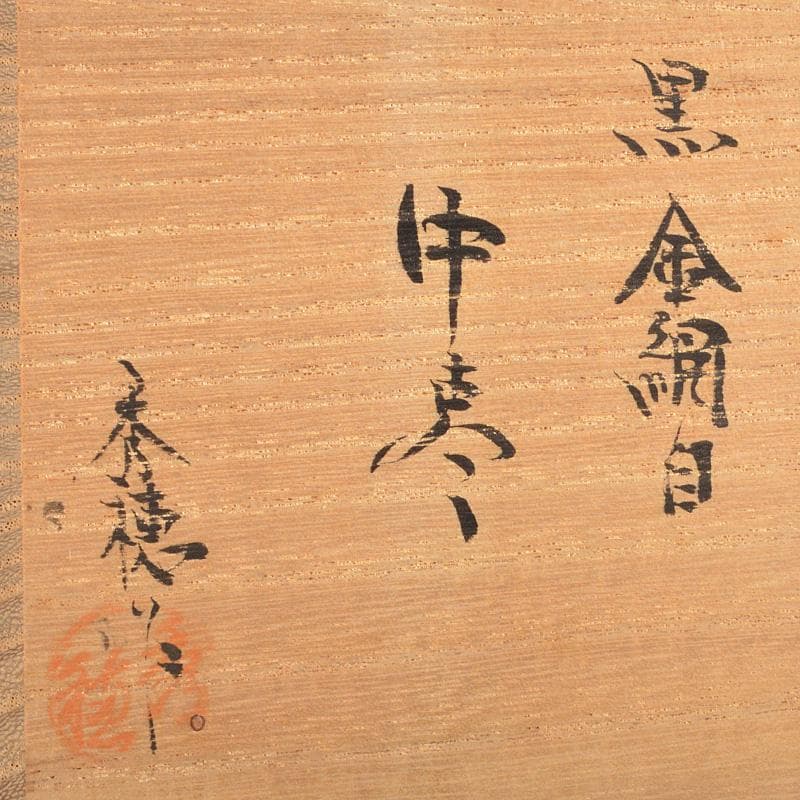 黒金網目
中棗
秀穂作